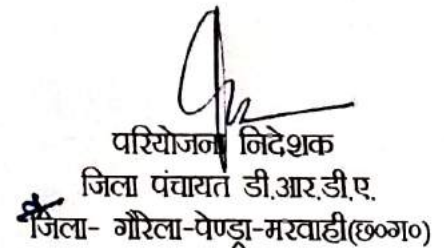 परियोजना निदेशक
जिला पंचायत डी.आर.डी.ए.
जिला- गौरेला-पेण्ड्रा-मरवाही(छ०ग०)